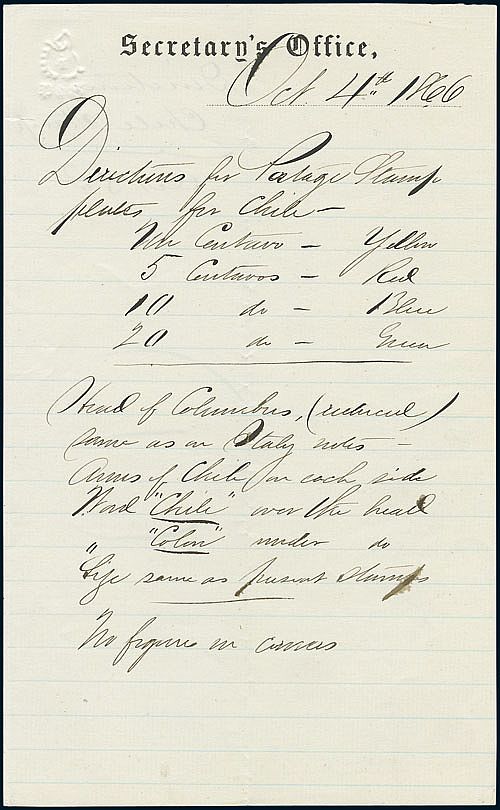 Secretary's Office,
Oct 4th 1866
Directions for Postage Stamp
plates for Chile —
One Centavo — Yellow
5 Centavos — Red
10 do — Blue
20 do — Green
Head of Columbus, (reduced)
same as on Italy notes —
Arms of Chile on each side
Word "Chile" over the head
" "Colon" under do
Size same as present stamps
No figures in corners